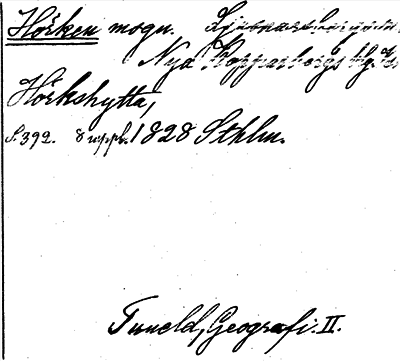 Hörken mogn. Ljusnarsbergs
Nya Kopparbergs
Hörkshytta,
S. 392. 8 uppl. 1828 Sthlm.
Tuneld, Geografi. II.